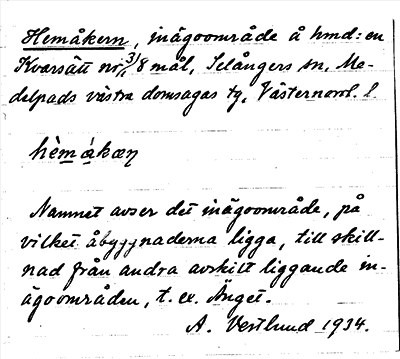 Hemåkern, inägoområde å hmd: en
Kvarsätt nr 3, 1/8 mål, Selångers sn, Me-
delpads västra domsagas tg, Västernorrl. l.
hèmákæṇ
Namnet avser det inägoområde, på
vilket åbyggnaderna ligga, till skill-
nad från andra avskilt liggande in-
ägoområden, t. ex. Änget.
A. Vestlund 1934.